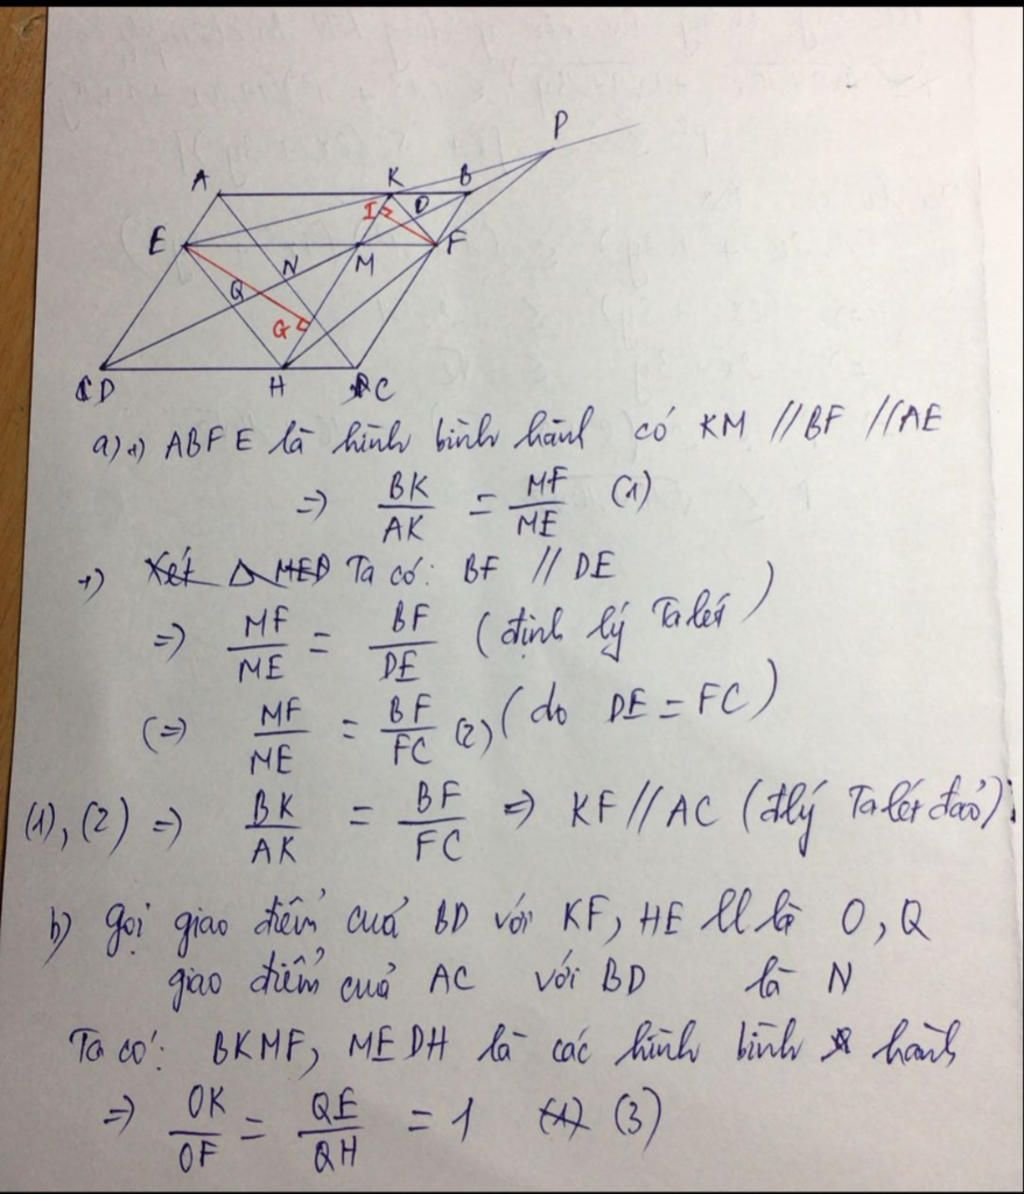 P
A K B
I O
E N M F
Q
G
D H C
a) +) ABFE là hình bình hành có KM // BF // AE
=> BK/AK = MF/ME (1)
+) Xét Δ MED Ta có: BF // DE
=> MF/ME = BF/DE (định lý Ta lét)
(=) MF/ME = BF/FC (2) (do DE = FC)
(1), (2) => BK/AK = BF/FC => KF // AC (đlý Ta lét đảo).
b) Gọi giao điểm của BD với KF, HE ll là O, Q
giao điểm của AC với BD là N
Ta có: BKMF, MEDH là các hình bình hành
=> OK/OF = QE/QH = 1 (1) (3)